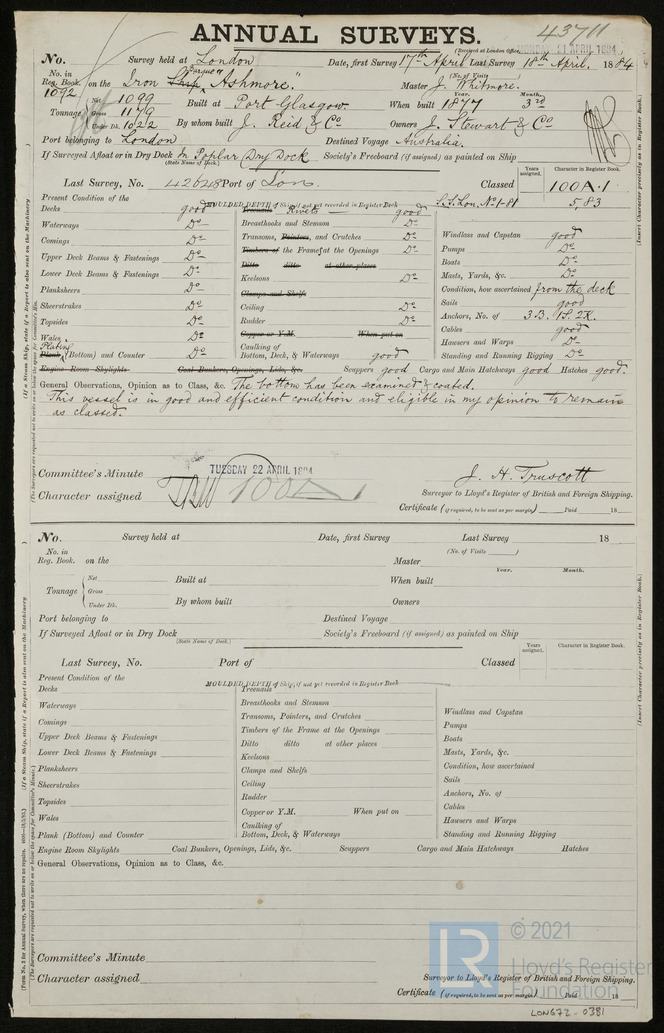 ANNUAL SURVEYS.
43711
(Received at London Office, MONDAY 21 APRIL 1884)
No. Survey held at London Date, first Survey 17th April Last Survey 18th April, 1884
No. in Reg. Book. 1092 on the Iron Barque Ship "Ashmore." Master J. Whitmore.
(No. of Visits)
Tonnage Net 1099 Built at Port Glasgow. When built 1877 Year. Month. 3rd
Gross 1179
Under Dk. 1022 By whom built J. Reid & Co Owners J. Stewart & Co
Port belonging to London Destined Voyage Australia.
If Surveyed Afloat or in Dry Dock In Poplar (Dry Dock Society's Freeboard (if assigned) as painted on Ship
(State Name of Dock.)
Years assigned. Character in Register Book.
Last Survey, No. 42648 Port of Lon. Classed 100A.1
5,83
Present Condition of the MOULDED DEPTH of Ship, if not yet recorded in Register Book S.S. Lon. No 1-81
Decks good Treenails Rivets good
Waterways Do Breasthooks and Stemson Do
Comings Do Transoms, Pointers, and Crutches Do Windlass and Capstan good
Upper Deck Beams & Fastenings Do Timbers of the Frame at the Openings Do Pumps Do
Lower Deck Beams & Fastenings Do Ditto ditto at other places Boats Do
Plankshears Do Keelsons Do Masts, Yards, &c. Do
Sheerstrakes Do Clamps and Shelfs Condition, how ascertained from the deck
Topsides Do Ceiling Do Sails good
Wales Do Rudder Do Anchors, No. of 3B. 1S. 2K.
Plating Copper or Y.M. When put on Cables good
Plank (Bottom) and Counter Do Caulking of Bottom, Deck, & Waterways good Hawsers and Warps Do
Standing and Running Rigging Do
Engine Room Skylights Coal Bunkers, Openings, Lids, &c. Scuppers good Cargo and Main Hatchways good Hatches good.
General Observations, Opinion as to Class, &c. The bottom has been examined & coated.
This vessel is in good and efficient condition and eligible in my opinion to remain
as classed.
Committee's Minute TUESDAY 22 APRIL 1884
J. H. Truscott
Character assigned 100A1 Surveyor to Lloyd's Register of British and Foreign Shipping.
Certificate (if required, to be sent as per margin) Paid 18
No. Survey held at Date, first Survey Last Survey 18
No. in Reg. Book. on the (No. of Visits ) Master
Year. Month.
Tonnage Net Built at When built
Gross
Under Dk. By whom built Owners
Port belonging to Destined Voyage
If Surveyed Afloat or in Dry Dock Society's Freeboard (if assigned) as painted on Ship
(State Name of Dock.)
Years assigned. Character in Register Book.
Last Survey, No. Port of Classed
Present Condition of the MOULDED DEPTH of Ship, if not yet recorded in Register Book
Decks Treenails
Waterways Breasthooks and Stemson
Comings Transoms, Pointers, and Crutches Windlass and Capstan
Upper Deck Beams & Fastenings Timbers of the Frame at the Openings Pumps
Lower Deck Beams & Fastenings Ditto ditto at other places Boats
Plankshears Keelsons Masts, Yards, &c.
Sheerstrakes Clamps and Shelfs Condition, how ascertained
Topsides Ceiling Sails
Wales Rudder Anchors, No. of
Copper or Y.M. When put on Cables
Plank (Bottom) and Counter Caulking of Bottom, Deck, & Waterways Hawsers and Warps
Standing and Running Rigging
Engine Room Skylights Coal Bunkers, Openings, Lids, &c. Scuppers Cargo and Main Hatchways Hatches
General Observations, Opinion as to Class, &c.
Committee's Minute
Character assigned Surveyor to Lloyd's Register of British and Foreign Shipping.
Certificate (if required, to be sent as per margin) Paid 18
LR © 2021
Lloyd's Register
Foundation
LON672-0381
(If a Steam Ship, state if a Report is also sent on the Machinery
(The Surveyors are requested not to write on or below the space for Committee's Minute.)
(Insert Character precisely as in Register Book.)